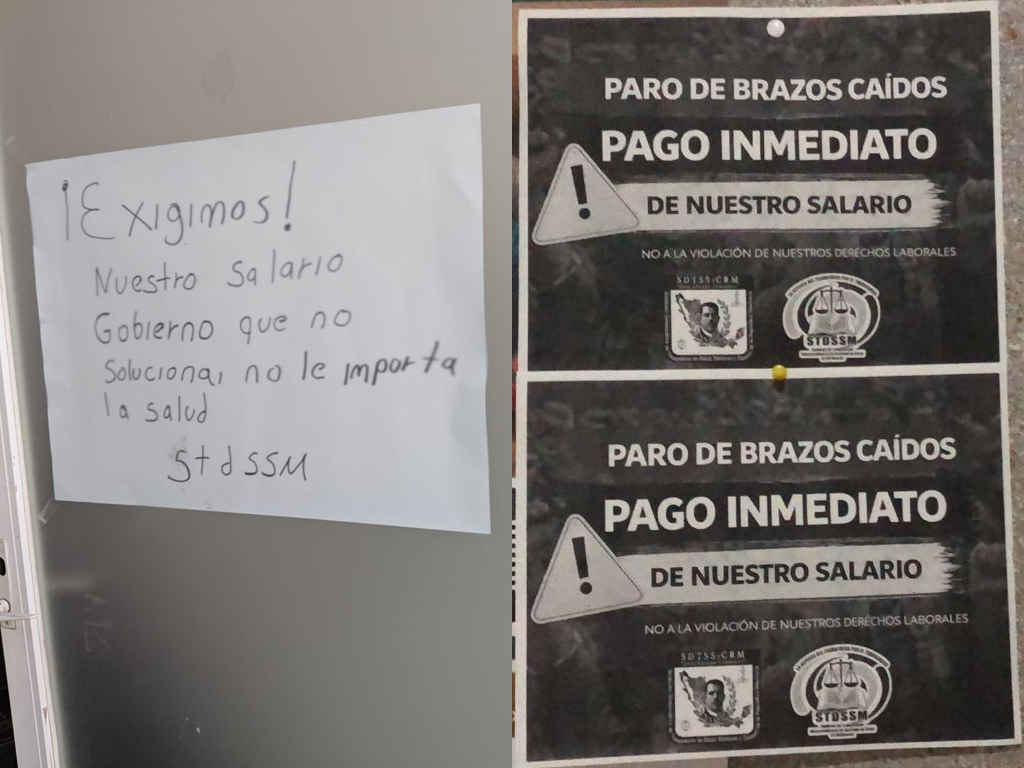 ¡Exigimos!
Nuestro Salario
Gobierno que no
Soluciona, no le importa
la salud
StdSSM
PARO DE BRAZOS CAÍDOS
PAGO INMEDIATO
!
DE NUESTRO SALARIO
NO A LA VIOLACIÓN DE NUESTROS DERECHOS LABORALES
SDTSS-CRM
STDSSM
PARO DE BRAZOS CAÍDOS
PAGO INMEDIATO
!
DE NUESTRO SALARIO
NO A LA VIOLACIÓN DE NUESTROS DERECHOS LABORALES
SDTSS-CRM
STDSSM